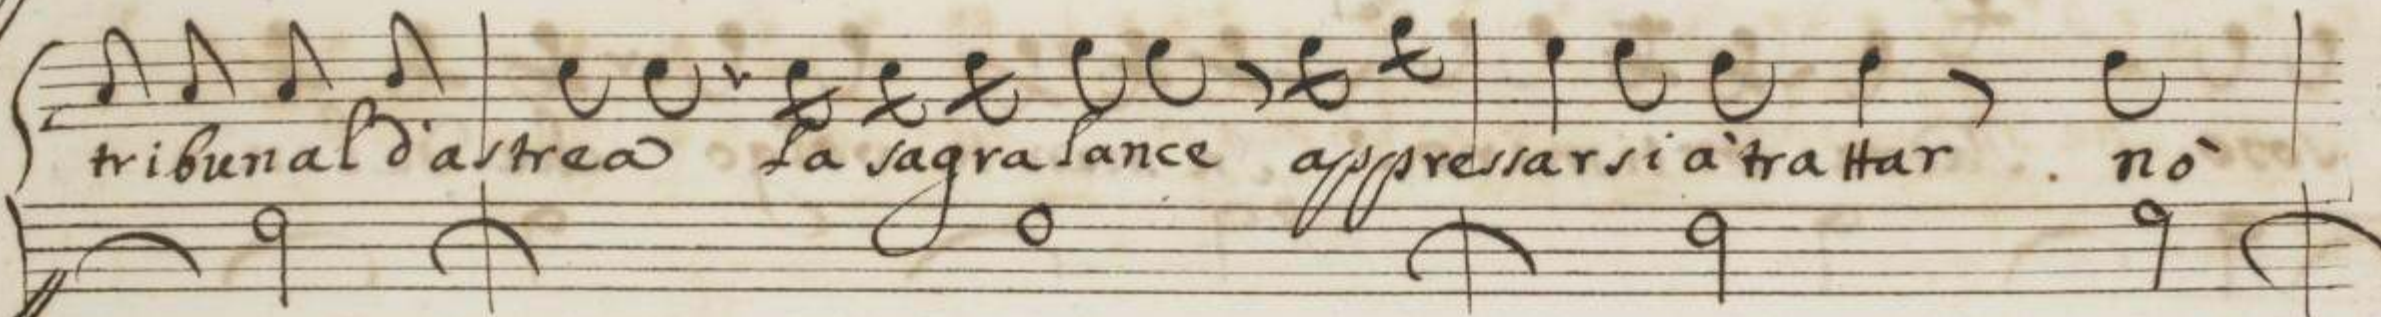 tribunal d'astrea la sagra lance appressarsi à trattar . nò